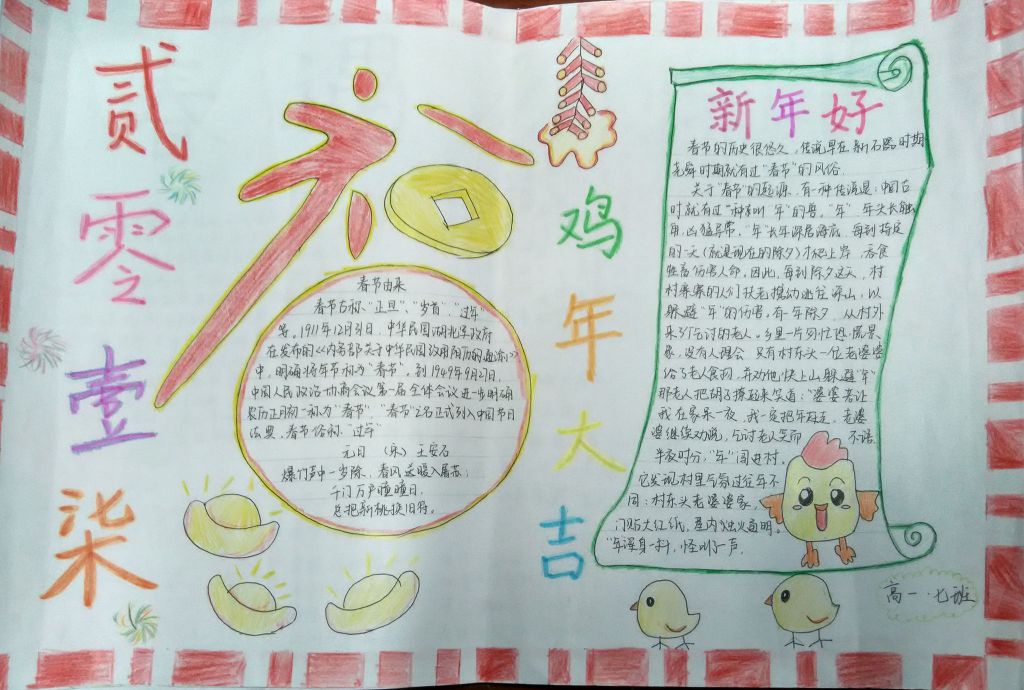 贰
零
壹
柒
鸡
年
大
吉
春节由来
春节古称“正旦”、“岁首”、“过年”
等。1911年12月31日，中华民国湖北军政府
在发布的《内务部关于中华民国改用阳历的通谕》
中，明确将年节称为“春节”。到1949年9月27日，
中国人民政治协商会议第一届全体会议进一步明确
农历正月初一称为“春节”，“春节”之名正式列入中国节日
法典，春节俗称“过年”
元日 （宋）王安石
爆竹声中一岁除，春风送暖入屠苏；
千门万户曈曈日，
总把新桃换旧符。
新年好
春节的历史很悠久，传说早在新石器时期
尧舜时期就有过“春节”的风俗.
关于“春节”的起源，有一种传说是：中国古
时就有过一种叫“年”的兽。“年”
头长触
角，凶猛异常，“年”长年深居海底，每到特定
的一天（就是现在的除夕）才爬上岸，吞食
牲畜伤害人命，因此，每到除夕这天，村
村寨寨的人们扶老携幼逃往深山，以
躲避“年”的伤害，有一年除夕，从村外
来了个乞讨的老人。乡里一片匆忙恐慌景
象，没有人理会，只有村东头一位老婆婆
给了老人食物，并劝他快上山躲避“年”
那老人把胡子撩起来笑道：“婆婆若让
我在家呆一夜，我一定把年
老婆
婆继续劝说，乞讨老人笑而 不语.
半夜时分，“年”闯进村。
它发现村里气氛过往年不
同：村东头老婆婆家，
门贴大红纸，屋内烛火通明。
“年”浑身一抖，怪叫了一声.
高一·七班